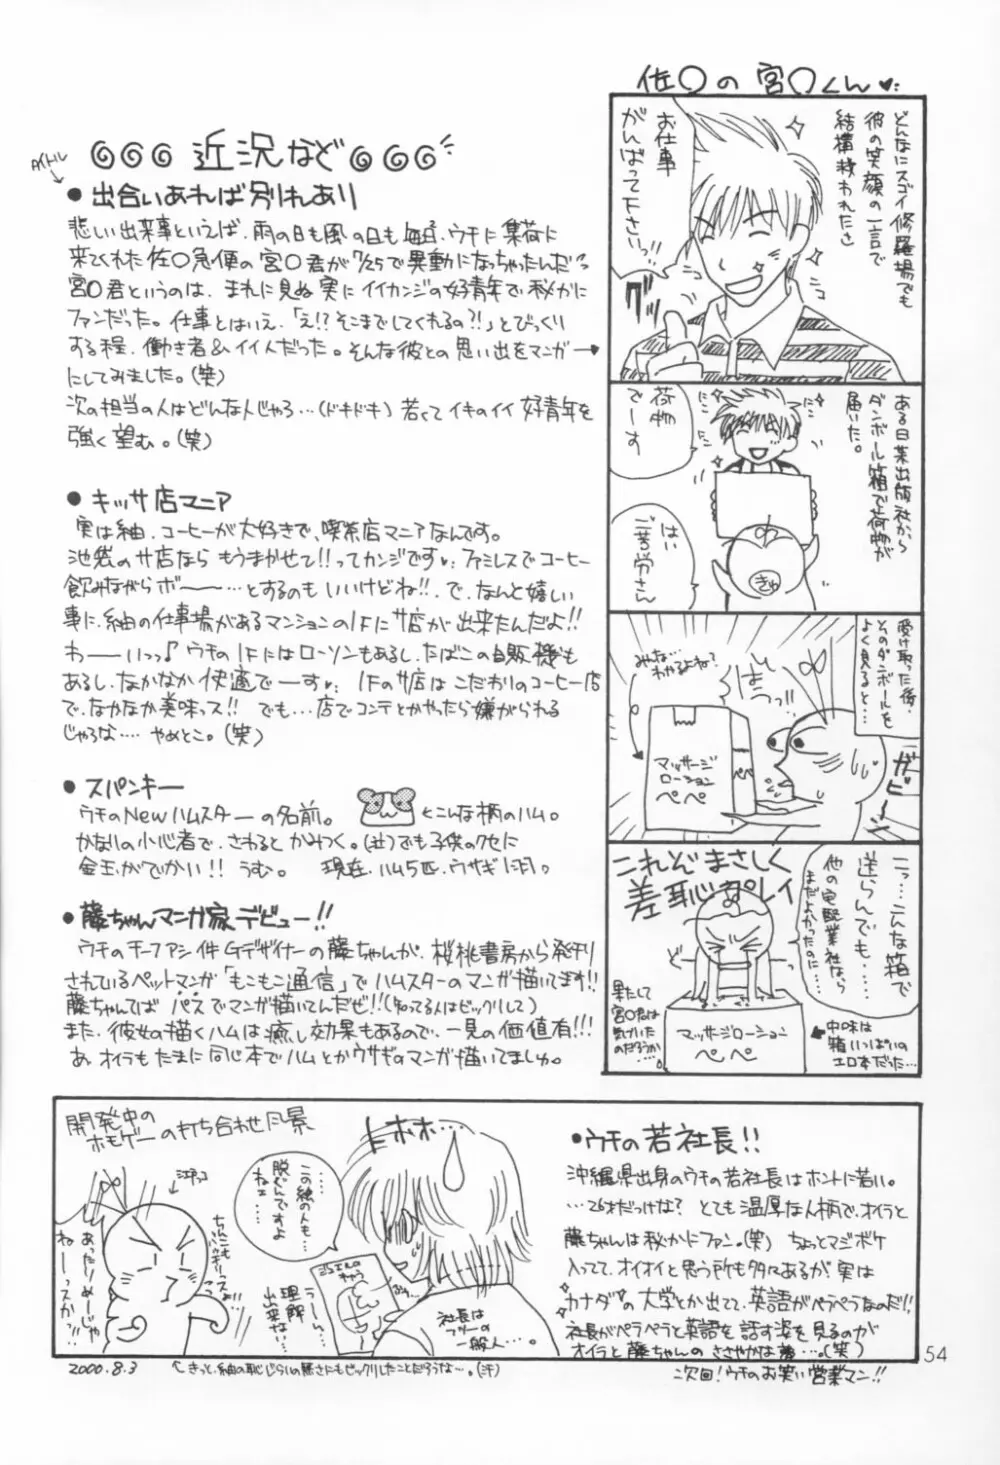 近況など
タイトル
● 出合いあれば別れあり
悲しい出来事といえば、雨の日も風の日も毎日、ウチに集荷に
来てくれた佐〇急便の宮〇君が7/25で異動になっちゃったんだっ
宮〇君というのは、まれに見ぬ実にイイカンジの好青年で秘かに
ファンだった。仕事とはいえ、「え!?そこまでしてくれるの?!」とびっくり
する程、働き者&イイ人だった。そんな彼との思い出をマンガ→
にしてみました。(笑)
次の担当の人はどんな人じゃろ…(ドキドキ) 若くてイキのイイ好青年を
強く望む。(笑)
● キッサ店マニア
実は紬、コーヒーが大好きで、喫茶店マニアなんです。
池袋のサ店なら もうまかせて!!ってカンジです♥ ファミレスでコーヒー
飲みながらボ――…とするのもいいけどね!!で、なんと嬉しい
事に、紬の仕事場があるマンションの1Fにサ店が出来たんだよ!!
わーーいっっ♪ウチの1Fにはローソンもあるし、たばこの自販機も
あるし、なかなか快適でーーす♥ 1Fのサ店はこだわりのコーヒー店
で、なかなか美味っス!! でも…店でコンテとかやったら嫌がられる
じゃろな…。やめとこ。(笑)
● スパンキー
ウチのNewハムスターの名前。 ←こんな柄のハム。
かなりの小心者で、さわるとかみつく。(泣)でも子供のクセに
金玉がでかい!! うむ。 現在、ハム5匹、ウサギ1羽。
● 藤ちゃんマンガ家デビュー!!
ウチのチーフアシ件Gデザイナーの藤ちゃんが、桜桃書房から発刊
されているペットマンガ「もこもこ通信」でハムスターのマンガ描いてます!!
藤ちゃんてばパスでマンガ描いてんだぜ!!(知ってる人はビックリして)
また、彼女の描くハムは癒し効果もあるので、一見の価値有!!!
あ、オイラもたまに同じ本でハムとかウサギのマンガ描いてましゅ。
佐〇の宮〇くん♥
どんなにスゴイ修羅場でも
彼の笑顔の一言で
結構救われたさ
お仕事
がんばって下さいっ
グッ
ある日某出版社から
ダンボール箱で荷物が
届いた。
荷物
でーす
はい
ご苦労さん
きゅ
受け取った後、
そのダンボールを
よく見ると…
みんな…
わかるよね?
マッサージ
ローション
ペペ
ペペ
ガビーン
こっ…こんな箱で
送らんでも…
他の宅配業社なら
まだよかったのに…
これぞまさしく
差恥プレイ
マッサージローション
ペペ
果たして
宮〇君は
気付いた
のだろうか…
中味は
箱いっぱいの
エロ本だった…
開発中の
ホモゲーの打ち合わせ風景
ちんこも
バッチリースよ
あったりめーじゃ
ねーースか?!
この絵の人も、
脱ぐんですよ
ねェ……
トホホ…
うーーん、
理解
出来ない…
社長は
フツーの
一般人。
2000.8.3
●ウチの若社長!!
沖縄県出身のウチの若社長はホントに若い。
…26才だっけな? とても温厚な人柄で、オイラと
藤ちゃんは秘かにファン。(笑) ちょっとマジボケ
入ってて、オイオイと思う所も多々あるが、実は
カナダの大学とか出てて、英語がペラペラなのだ!!
社長がペラペラと英語を話す姿を見るのが
オイラと藤ちゃんのささやかな夢…。(笑)
次回!ウチのお笑い営業マン!!
54